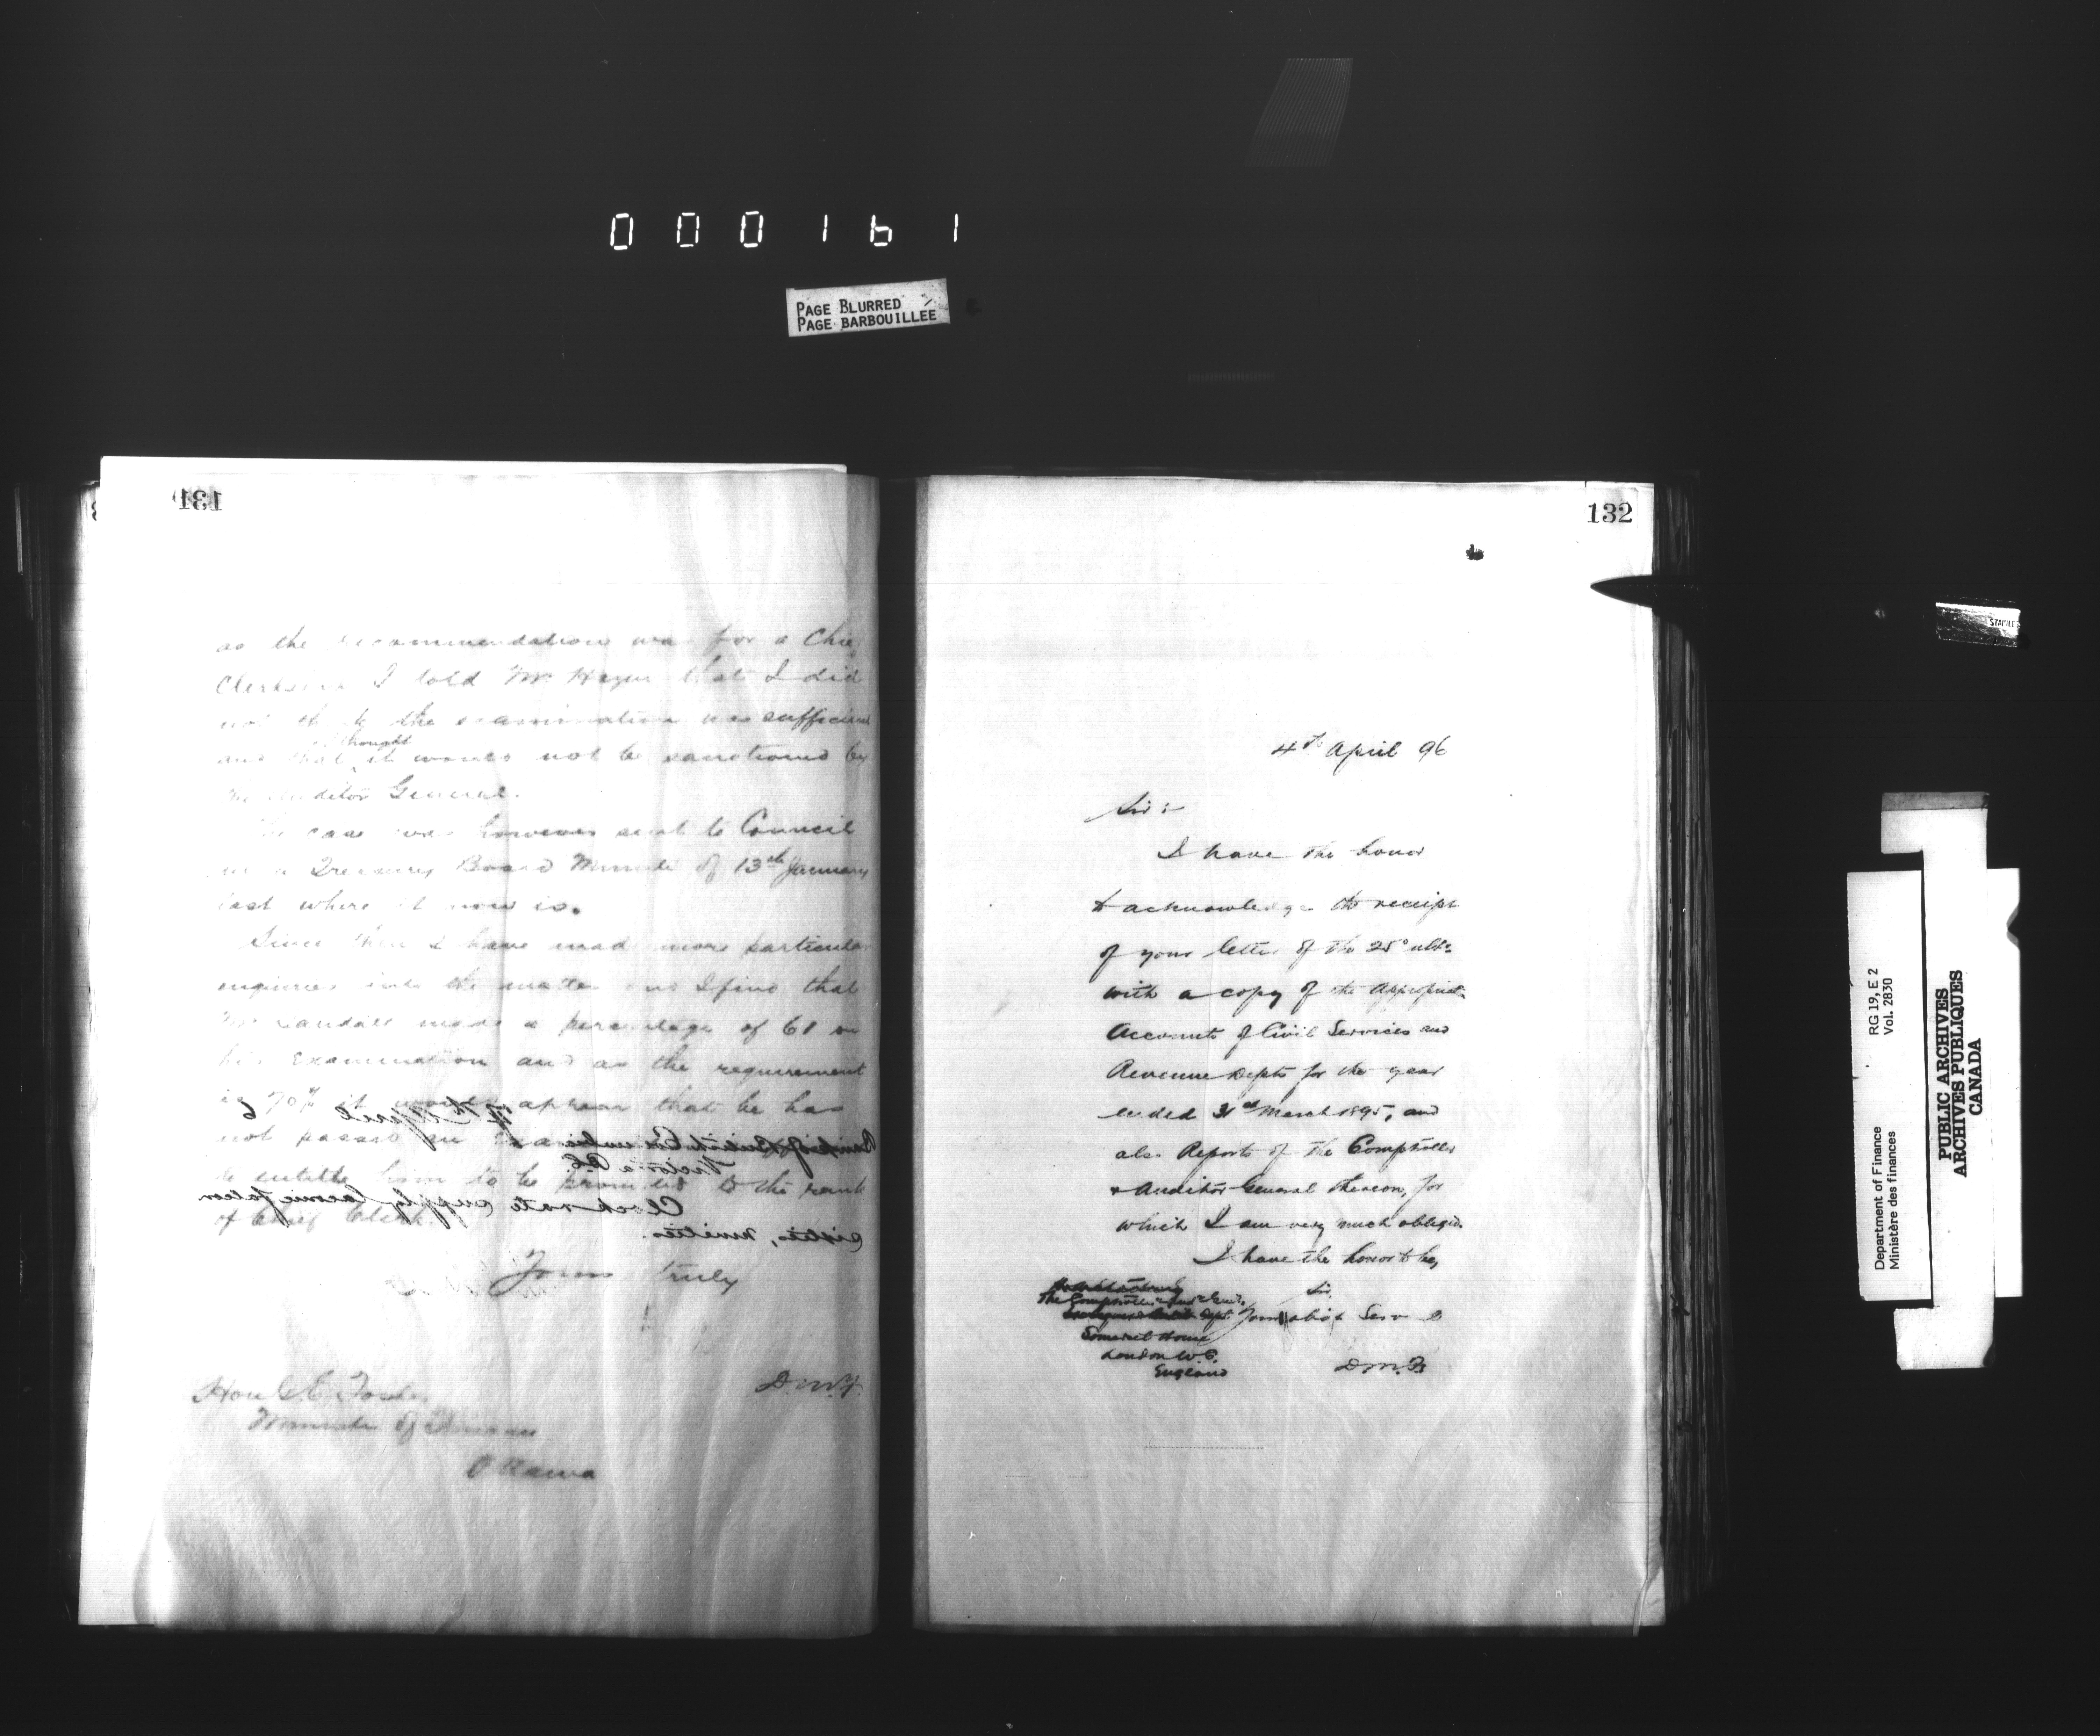 000161
PAGE BLURRED
PAGE BARBOUILLEE
131
as the recommendation was for a Chief
Clerkship I told Mr. that I did
not think the examination was sufficient
and that thought it would not be sanctioned by
the Auditor General.
The case was however sent to Council
in a Treasury Board Minute of 13th January
last where it now is.
Since then I have made more particular
enquiries into the matter and I find that
Mr. made a percentage of 61 on
his examination and as the requirement
is 70% it would appear that he has
not passed an
to entitle him to be promoted to the rank
of Chief Clerk.
Yours truly
D.M.F.
Hon G.E. Foster
Minister of Finance
Ottawa
Bank of British Columbia
Victoria B.C.
132
4th April 96
Sir :-
I have the honor
to acknowledge the receipt
of your letter of the 25° ulto
with a copy of the Appropriation
Accounts of Civil Services and
Revenue Depts for the year
ended 31st March 1895, and
also Reports of the Comptroller
& Auditor General thereon, for
which I am very much obliged.
I have the honor to be,
Sir,
Your obdt Serv
D.M.F.
The Comptroller and
Somerset House
London W.C.
England
STAPLES
Department of Finance
Ministère des finances
RG 19, E 2
Vol. 2830
PUBLIC ARCHIVES
ARCHIVES PUBLIQUES
CANADA